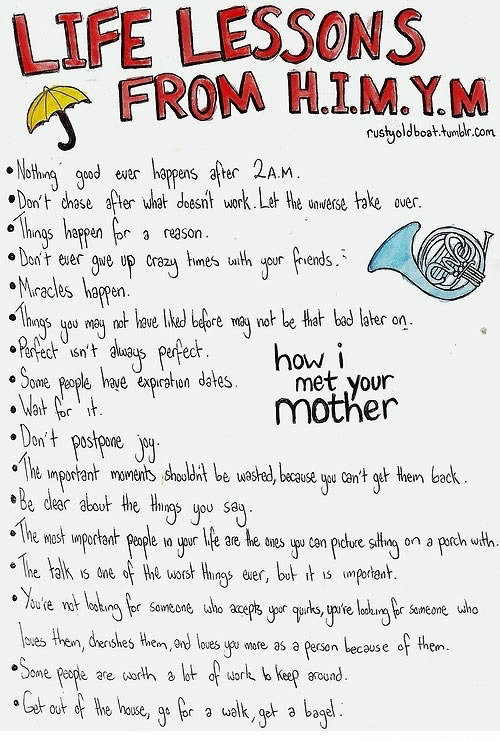 LIFE LESSONS
FROM H.I.M.Y.M
rustyoldboat.tumblr.com
• Nothing good ever happens after 2A.M.
• Don't chase after what doesn't work. Let the universe take over.
• Things happen for a reason.
• Don't ever give up crazy times with your friends.
• Miracles happen.
• Things you may not have liked before may not be that bad later on.
• Perfect isn't always perfect.
how i
met your
mother
• Some people have expiration dates.
• Wait for it.
• Don't postpone joy.
• The important moments shouldn't be wasted, because you can't get them back.
• Be clear about the things you say.
• The most important people in your life are the ones you can picture sitting on a porch with.
• The talk is one of the worst things ever, but it is important.
• You're not looking for someone who accepts your quirks, you're looking for someone who
loves them, cherishes them, and loves you more as a person because of them.
• Some people are worth a lot of work to keep around.
• Get out of the house, go for a walk, get a bagel.